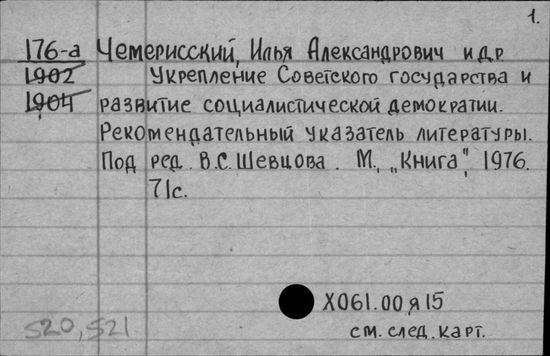 1.
176-а Чемерисский, Илья Александрович и др
1902 Укрепление Советского государства и
1904 развитие социалистической демократии.
Рекомендательный указатель литературы.
Под ред. В.С. Шевцова. М., „Книга", 1976.
71с.
Х061.00 я 15
520, 521 см. след. карт.